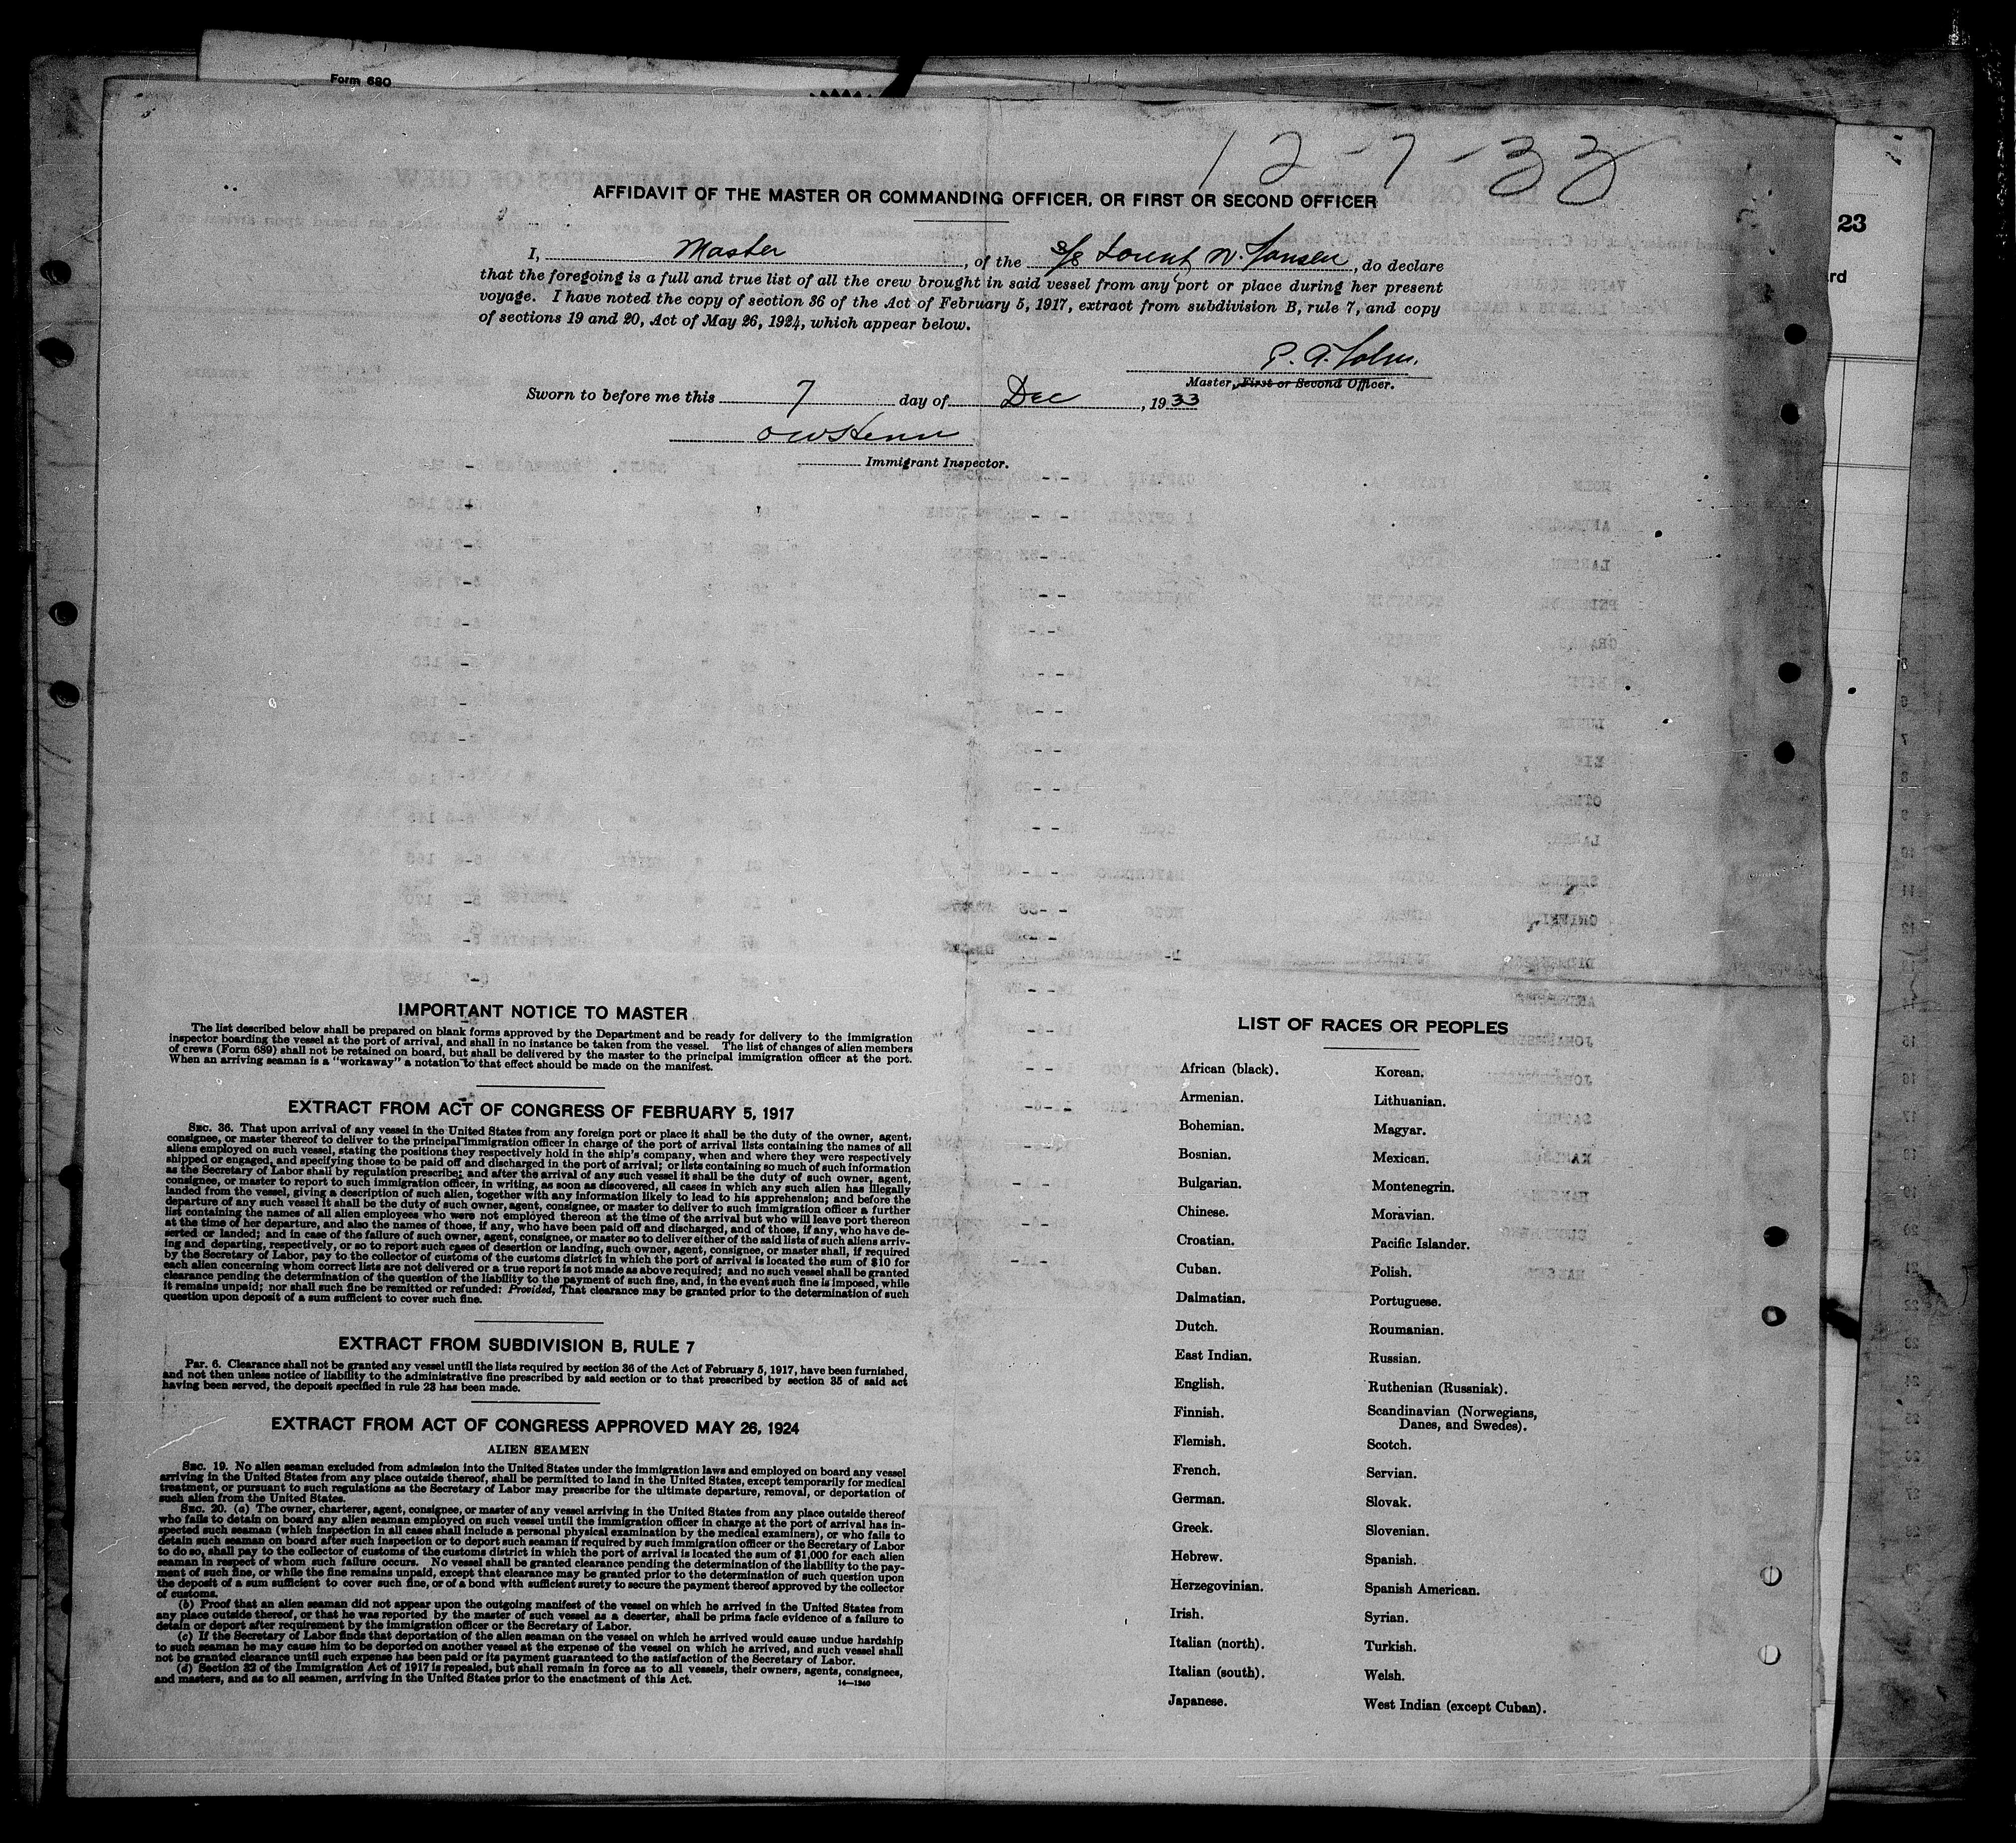 Form 680
12-7-33
23
AFFIDAVIT OF THE MASTER OR COMMANDING OFFICER, OR FIRST OR SECOND OFFICER
I, Master, of the S/S Lourentz W. Hansen, do declare
that the foregoing is a full and true list of all the crew brought in said vessel from any port or place during her present
voyage. I have noted the copy of section 36 of the Act of February 5, 1917, extract from subdivision B, rule 7, and copy
of sections 19 and 20, Act of May 26, 1924, which appear below.
P. A. Holm.
Master, First or Second Officer.
Sworn to before me this 7 day of Dec, 1933
Immigrant Inspector.
IMPORTANT NOTICE TO MASTER
The list described below shall be prepared on blank forms approved by the Department and be ready for delivery to the immigration
inspector boarding the vessel at the port of arrival, and shall in no instance be taken from the vessel. The list of changes of alien members
of crews (Form 689) shall not be retained on board, but shall be delivered by the master to the principal immigration officer at the port.
When an arriving seaman is a "workaway" a notation to that effect should be made on the manifest.
EXTRACT FROM ACT OF CONGRESS OF FEBRUARY 5, 1917
SEC. 36. That upon arrival of any vessel in the United States from any foreign port or place it shall be the duty of the owner, agent,
consignee, or master thereof to deliver to the principal immigration officer in charge of the port of arrival lists containing the names of all
aliens employed on such vessel, stating the positions they respectively hold in the ship's company, when and where they were respectively
shipped or engaged, and specifying those to be paid off and discharged in the port of arrival; or lists containing so much of such information
as the Secretary of Labor shall by regulation prescribe; and after the arrival of any such vessel it shall be the duty of such owner, agent,
consignee, or master to report to such immigration officer, in writing, as soon as discovered, all cases in which any such alien has illegally
landed from the vessel, giving a description of such alien, together with any information likely to lead to his apprehension; and before the
departure of any such vessel it shall be the duty of such owner, agent, consignee, or master to deliver to such immigration officer a further
list containing the names of all alien employees who were not employed thereon at the time of the arrival but who will leave port thereon
at the time of her departure, and also the names of those, if any, who have been paid off and discharged, and of those, if any, who have de-
serted or landed; and in case of the failure of such owner, agent, consignee, or master so to deliver either of the said lists of such aliens arriv-
ing and departing, respectively, or so to report such cases of desertion or landing, such owner, agent, consignee, or master shall, if required
by the Secretary of Labor, pay to the collector of customs of the customs district in which the port of arrival is located the sum of $10 for
each alien concerning whom correct lists are not delivered or a true report is not made as above required; and no such vessel shall be granted
clearance pending the determination of the question of the liability to the payment of such fine, and, in the event such fine is imposed, while
it remains unpaid; nor shall such fine be remitted or refunded: Provided, That clearance may be granted prior to the determination of such
question upon deposit of a sum sufficient to cover such fine.
EXTRACT FROM SUBDIVISION B, RULE 7
Par. 6. Clearance shall not be granted any vessel until the lists required by section 36 of the Act of February 5, 1917, have been furnished,
and not then unless notice of liability to the administrative fine prescribed by said section or to that prescribed by section 35 of said act
having been served, the deposit specified in rule 23 has been made.
EXTRACT FROM ACT OF CONGRESS APPROVED MAY 26, 1924
ALIEN SEAMEN
SEC. 19. No alien seaman excluded from admission into the United States under the immigration laws and employed on board any vessel
arriving in the United States from any place outside thereof, shall be permitted to land in the United States, except temporarily for medical
treatment, or pursuant to such regulations as the Secretary of Labor may prescribe for the ultimate departure, removal, or deportation of
such alien from the United States.
SEC. 20. (a) The owner, charterer, agent, consignee, or master of any vessel arriving in the United States from any place outside thereof
who fails to detain on board any alien seaman employed on such vessel until the immigration officer in charge at the port of arrival has in-
spected such seaman (which inspection in all cases shall include a personal physical examination by the medical examiners), or who fails to
detain such seaman on board after such inspection or to deport such seaman if required by such immigration officer or the Secretary of Labor
to do so, shall pay to the collector of customs of the customs district in which the port of arrival is located the sum of $1,000 for each alien
seaman in respect of whom such failure occurs. No vessel shall be granted clearance pending the determination of the liability to the pay-
ment of such fine, or while the fine remains unpaid, except that clearance may be granted prior to the determination of such question upon
the deposit of a sum sufficient to cover such fine, or of a bond with sufficient surety to secure the payment thereof approved by the collector
of customs.
(b) Proof that an alien seaman did not appear upon the outgoing manifest of the vessel on which he arrived in the United States from
any place outside thereof, or that he was reported by the master of such vessel as a deserter, shall be prima facie evidence of a failure to
detain or deport after requirement by the immigration officer or the Secretary of Labor.
(c) If the Secretary of Labor finds that deportation of the alien seaman on the vessel on which he arrived would cause undue hardship
to such seaman he may cause him to be deported on another vessel at the expense of the vessel on which he arrived, and such vessel shall
not be granted clearance until such expense has been paid or its payment guaranteed to the satisfaction of the Secretary of Labor.
(d) Section 32 of the Immigration Act of 1917 is repealed, but shall remain in force as to all vessels, their owners, agents, consignees,
and masters, and as to all seamen, arriving in the United States prior to the enactment of this Act.
14—1240
LIST OF RACES OR PEOPLES
African (black).
Armenian.
Bohemian.
Bosnian.
Bulgarian.
Chinese.
Croatian.
Cuban.
Dalmatian.
Dutch.
East Indian.
English.
Finnish.
Flemish.
French.
German.
Greek.
Hebrew.
Herzegovinian.
Irish.
Italian (north).
Italian (south).
Japanese.
Korean.
Lithuanian.
Magyar.
Mexican.
Montenegrin.
Moravian.
Pacific Islander.
Polish.
Portuguese.
Roumanian.
Russian.
Ruthenian (Russniak).
Scandinavian (Norwegians,
Danes, and Swedes).
Scotch.
Servian.
Slovak.
Slovenian.
Spanish.
Spanish American.
Syrian.
Turkish.
Welsh.
West Indian (except Cuban).